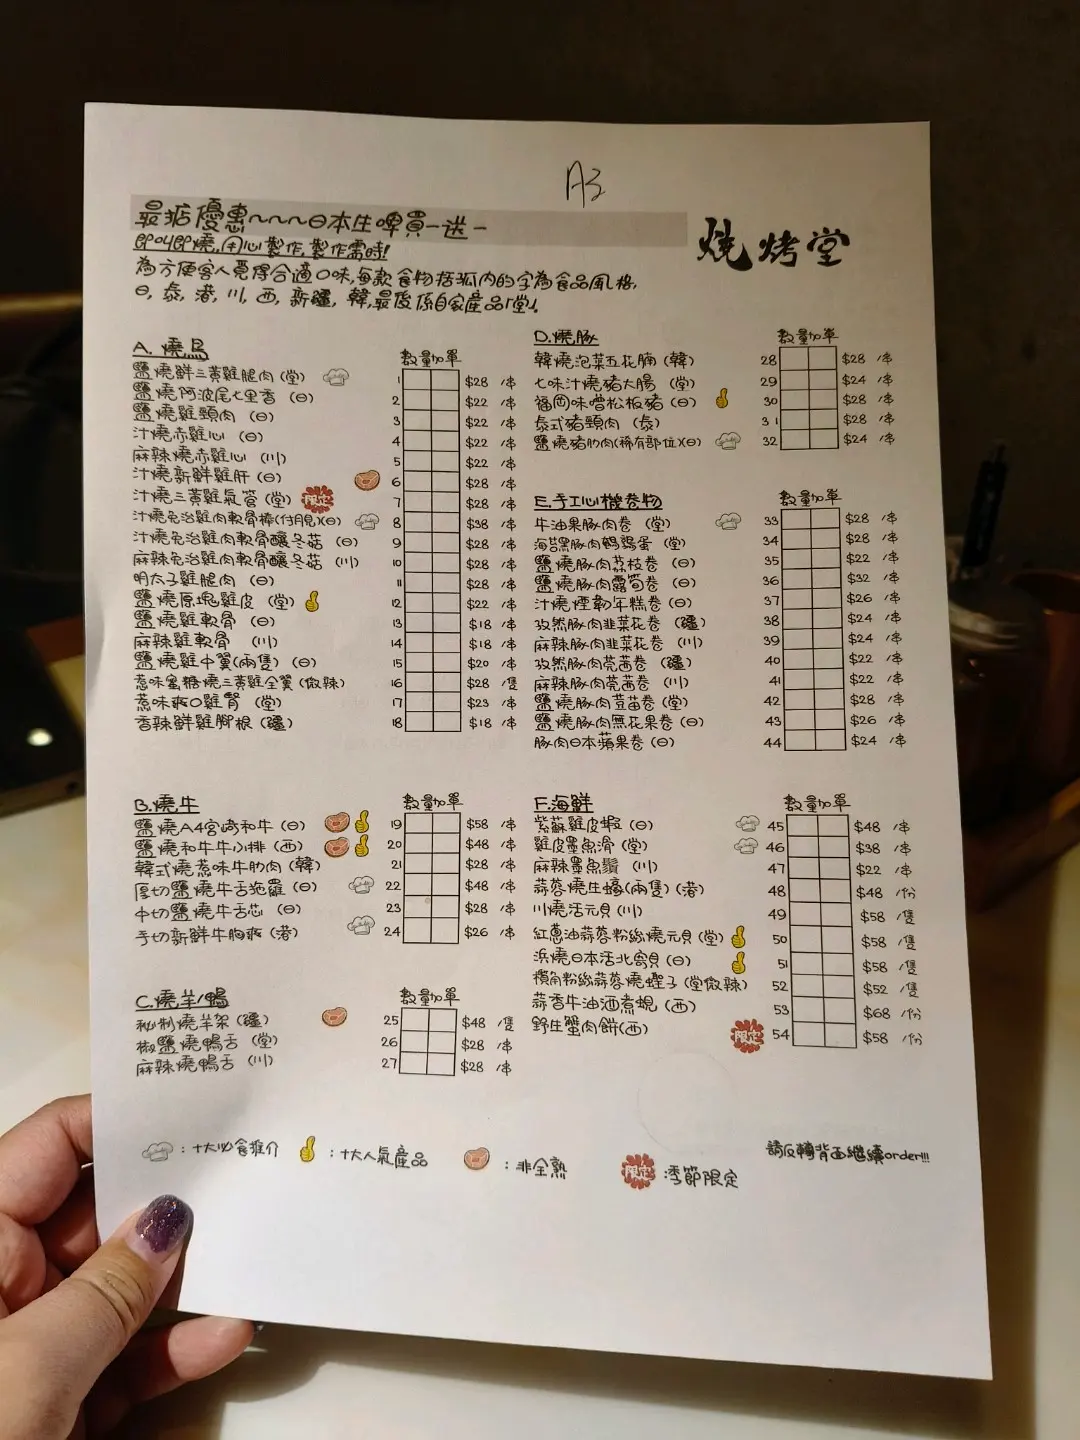 A3
最掂優惠~~~~日本生啤買一送一
燒烤堂
即叫即燒,用心製作,製作需時!
為方便客人覓得合適口味,每款食物括弧內的字為食品風格,
日, 泰, 港, 川, 西, 新疆, 韓,最後係自家產品「堂」。
A. 燒鳥 數量 加單
鹽燒鮮三黃雞腿肉 (堂) 1 $28 /串
鹽燒阿波尾七里香 (日) 2 $22 /串
鹽燒雞頸肉 (日) 3 $22 /串
汁燒赤雞心 (日) 4 $22 /串
麻辣燒赤雞心 (川) 5 $22 /串
汁燒新鮮雞肝 (日) 6 $28 /串
汁燒三黃雞氣管 (堂) 限定 7 $28 /串
汁燒免治雞肉軟骨棒(付月見)(日) 8 $38 /串
汁燒免治雞肉軟骨釀冬菇 (日) 9 $28 /串
麻辣免治雞肉軟骨釀冬菇 (川) 10 $28 /串
明太子雞腿肉 (日) 11 $28 /串
鹽燒原塊雞皮 (堂) 12 $22 /串
鹽燒雞軟骨 (日) 13 $18 /串
麻辣雞軟骨 (川) 14 $18 /串
鹽燒雞中翼(兩隻) (日) 15 $20 /串
惹味蜜糖燒三黃雞全翼 (微辣) 16 $28 /隻
惹味爽口雞腎 (堂) 17 $23 /串
香辣鮮雞腳根 (疆) 18 $18 /串
B.燒牛 數量 加單
鹽燒A4宮崎和牛 (日) 19 $58 /串
鹽燒和牛牛小排 (西) 20 $48 /串
韓式燒惹味牛肋肉 (韓) 21 $28 /串
厚切鹽燒牛舌拖羅 (日) 22 $48 /串
中切鹽燒牛舌芯 (日) 23 $28 /串
手切新鮮牛胸爽 (港) 24 $26 /串
C.燒羊/鴨 數量 加單
秘制燒羊架 (疆) 25 $48 /隻
椒鹽燒鴨舌 (堂) 26 $28 /串
麻辣燒鴨舌 (川) 27 $28 /串
D.燒豚 數量 加單
韓燒泡菜五花腩 (韓) 28 $28 /串
七味汁燒豬大腸 (堂) 29 $24 /串
福岡味噌松板豬 (日) 30 $28 /串
泰式豬頸肉 (泰) 31 $28 /串
鹽燒豬肋肉(稀有部位)(日) 32 $24 /串
E.手工心機卷物 數量 加單
牛油果豚肉卷 (堂) 33 $28 /串
海苔黑豚肉鵪鶉蛋 (堂) 34 $28 /串
鹽燒豚肉荔枝卷 (日) 35 $22 /串
鹽燒豚肉露筍卷 (日) 36 $32 /串
汁燒煙肋年糕卷 (日) 37 $26 /串
孜然豚肉韭菜花卷 (疆) 38 $24 /串
麻辣豚肉韭菜花卷 (川) 39 $24 /串
孜然豚肉芫茜卷 (疆) 40 $22 /串
麻辣豚肉芫茜卷 (川) 41 $22 /串
鹽燒豚肉荳苗卷 (堂) 42 $28 /串
鹽燒豚肉無花果卷 (日) 43 $26 /串
豚肉日本蘋果卷 (日) 44 $24 /串
F.海鮮 數量 加單
紫蘇雞皮蝦 (日) 45 $48 /串
雞皮墨魚滑 (堂) 46 $38 /串
麻辣墨魚鬚 (川) 47 $22 /串
蒜蓉燒生蠔(兩隻) (港) 48 $48 /份
川燒活元貝 (川) 49 $58 /隻
紅蔥油蒜蓉粉絲燒元貝 (堂) 50 $58 /隻
浜燒日本活北寄貝 (日) 51 $58 /隻
欖角粉絲蒜蓉燒蟶子 (堂微辣) 52 $52 /隻
蒜香牛油酒煮蜆 (西) 53 $68 /份
野生蟹肉餅(西) 限定 54 $58 /份
: 十大必食推介 : 十大人氣產品 : 非全熟 限定 : 季節限定
請反轉背面繼續order!!!